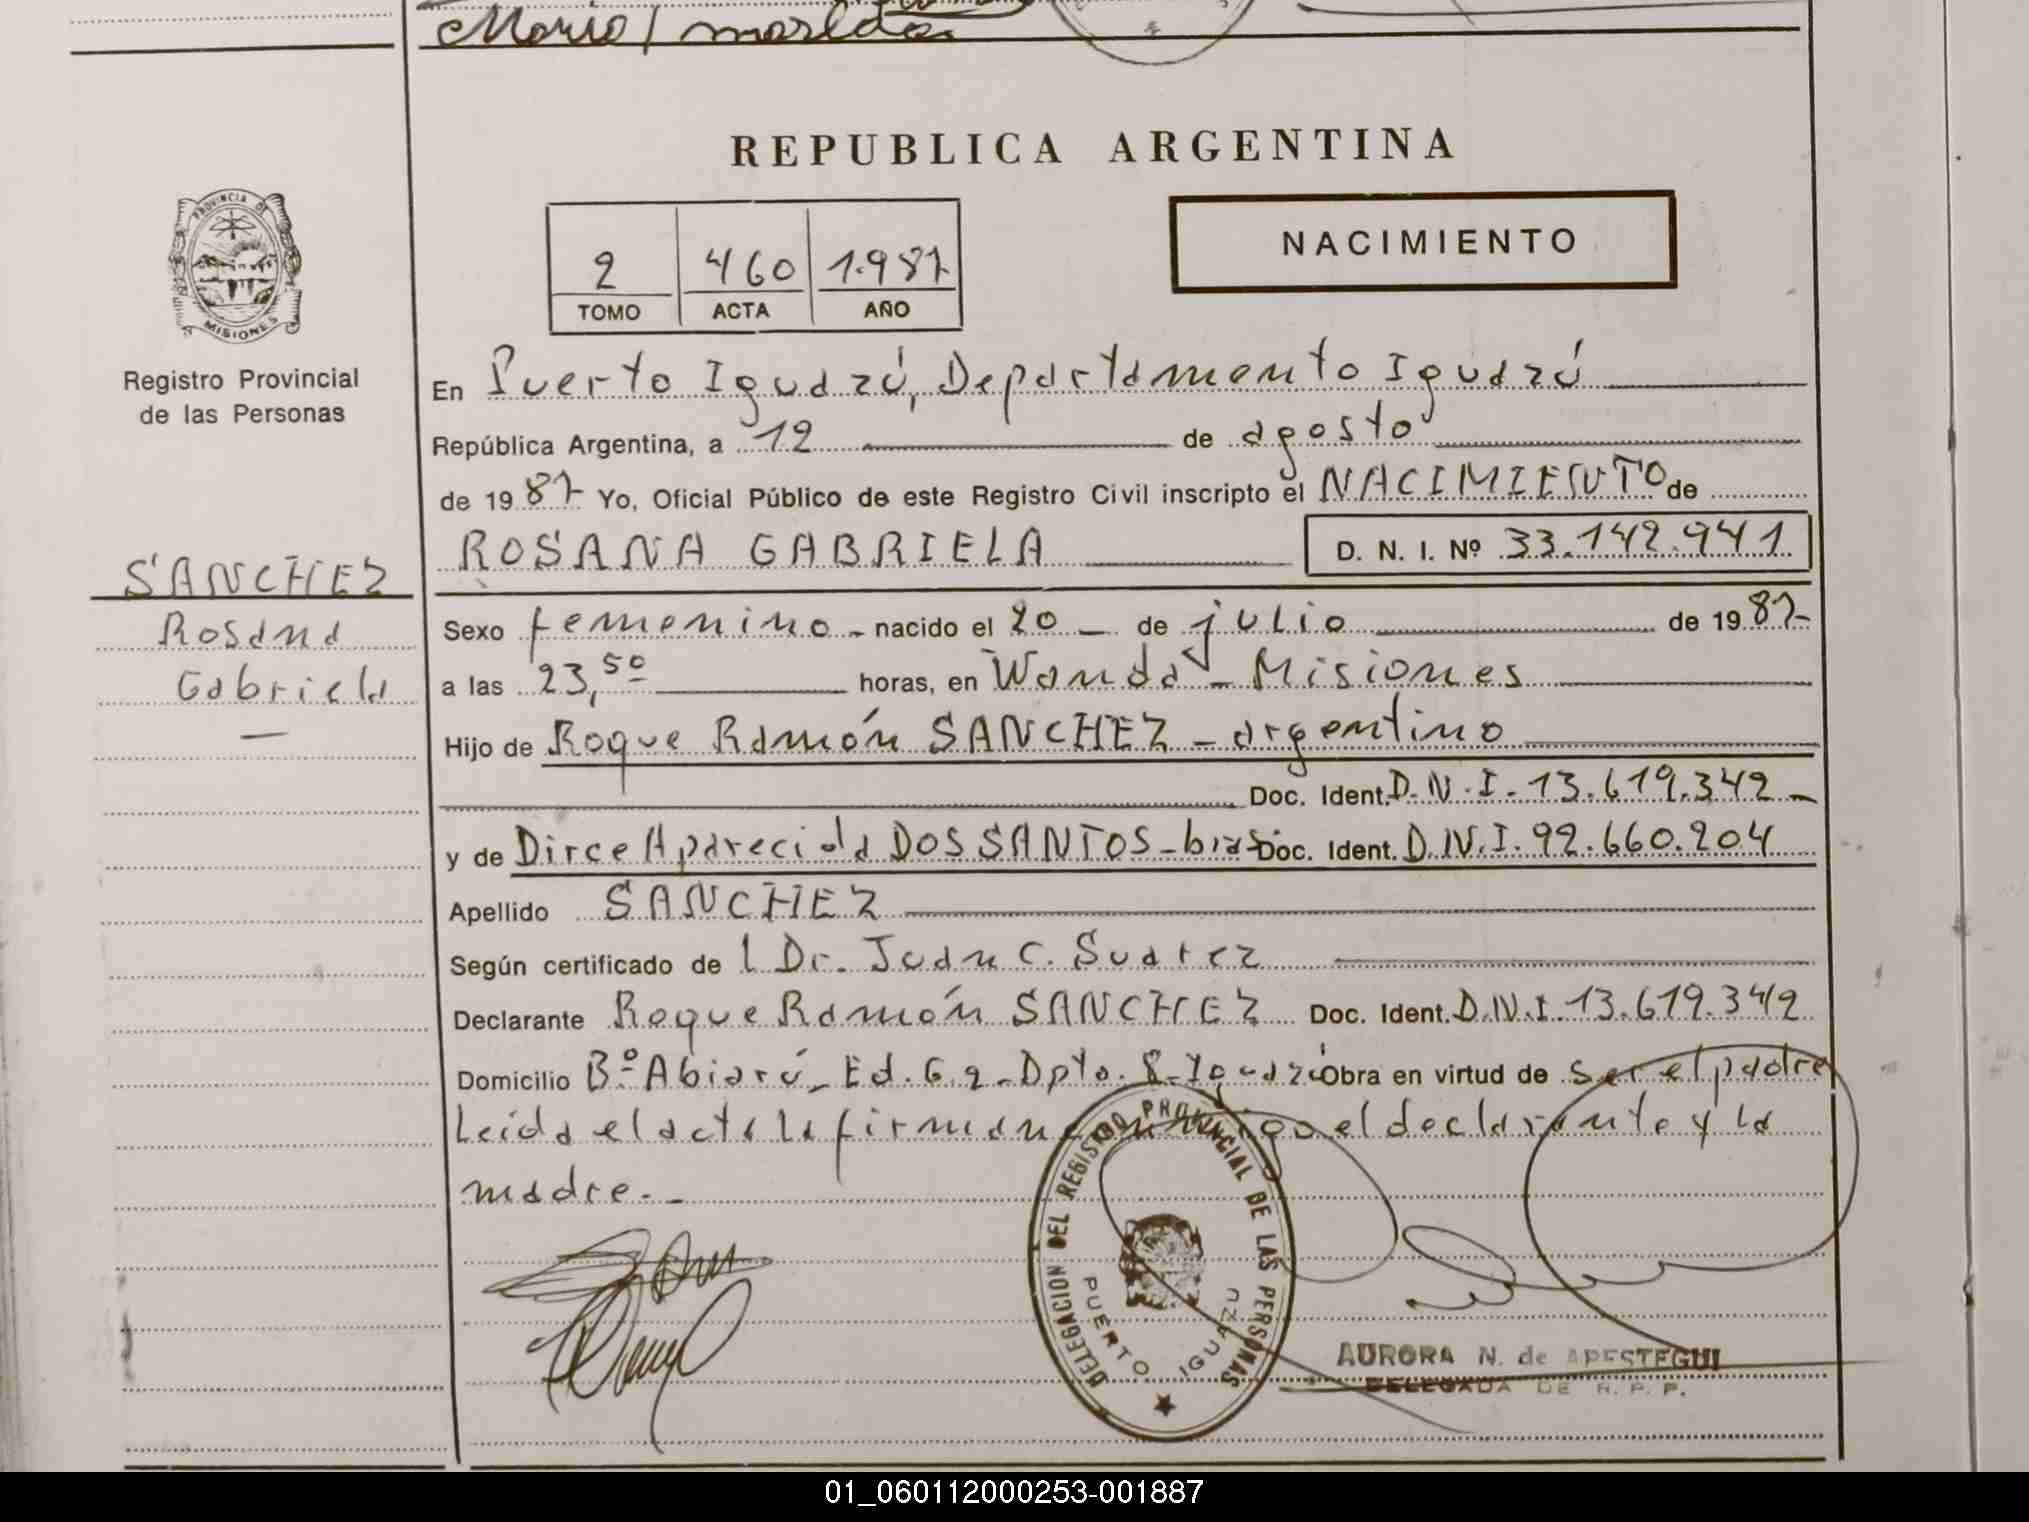 Mario
REPUBLICA ARGENTINA
PROVINCIA DE
MISIONES
Registro Provincial
de las Personas
2 460 1.987
TOMO ACTA AÑO
NACIMIENTO
En Puerto Iguazú, Departamento Iguazú
República Argentina, a 12 de agosto
de 1987 Yo, Oficial Público de este Registro Civil inscripto el NACIMIENTO de
ROSANA GABRIELA D. N. I. Nº 33.142.941
SANCHEZ
Rosana
Gabriela
Sexo femenino - nacido el 20 - de julio de 1987-
a las 23,50 horas, en Wanda - Misiones
Hijo de Roque Ramón SANCHEZ - argentino
Doc. Ident. D.N.I. 13.619.342 -
y de Dirce Aparecida DOS SANTOS - bras. Doc. Ident. D.N.I. 92.660.204
Apellido SANCHEZ
Según certificado de l Dr. Juan C. Suarez
Declarante Roque Ramón SANCHEZ Doc. Ident. D.N.I. 13.619.342
Domicilio Bº Abiarú - Ed. G 2 - Dpto. 8 - Iguazú Obra en virtud de ser el padre
Leída el acta la firman conmigo el declarante y la
madre. -
DELEGACION DEL REGISTRO PROVINCIAL DE LAS PERSONAS
PUERTO IGUAZU
AURORA N. de APESTEGUI
DELEGADA DE R. P. P.
01_060112000253-001887